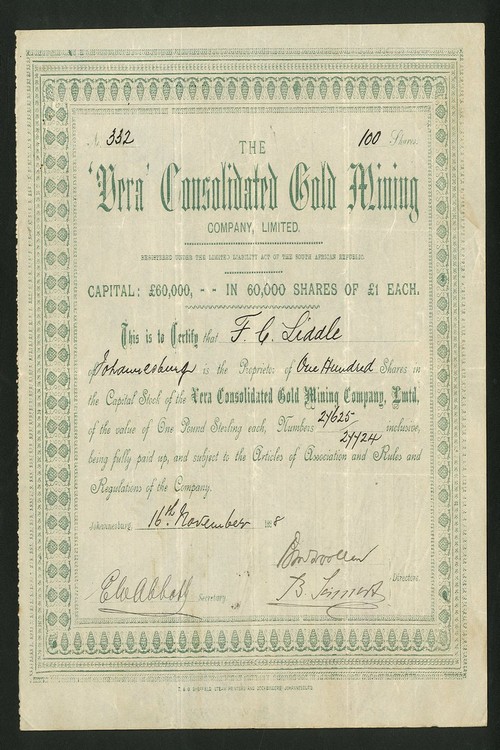 332
100 Shares.
THE
'Vera' Consolidated Gold Mining
COMPANY, LIMITED.
REGISTERED UNDER THE LIMITED LIABILITY ACT OF THE SOUTH AFRICAN REPUBLIC.
CAPITAL: £60,000, - - IN 60,000 SHARES OF £1 EACH.
This is to Certify that F. C. Liddle
of Johannesburg is the Proprietor of One Hundred Shares in
the Capital Stock of the Vera Consolidated Gold Mining Company, Lmtd,
of the value of One Pound Sterling each, Numbers 27625/27724 inclusive,
being fully paid up, and subject to the Articles of Association and Rules and
Regulations of the Company.
Johannesburg, 16th November 188
Directors.
Abbott Secretary.